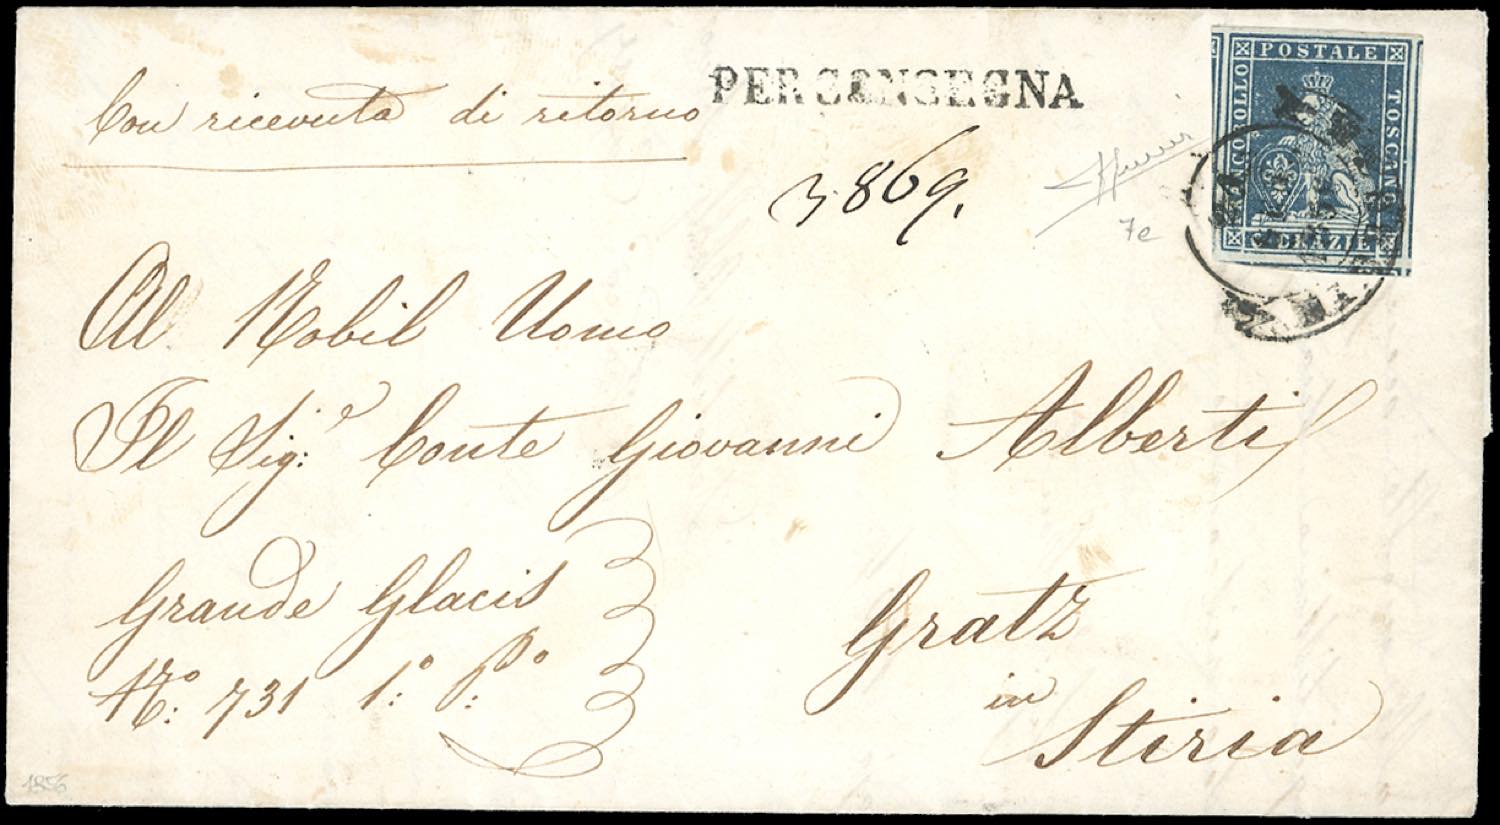 Con ricevuta di ritorno
PER CONSEGNA
3869.
7e
FRANCOBOLLO POSTALE TOSCANO
6 CRAZIE
Al Nobil Uomo
Il Sig.e Conte Giovanni Alberti
Grande Glacis
No: 731 1o: Po:
Gratz
in
Stiria
1856